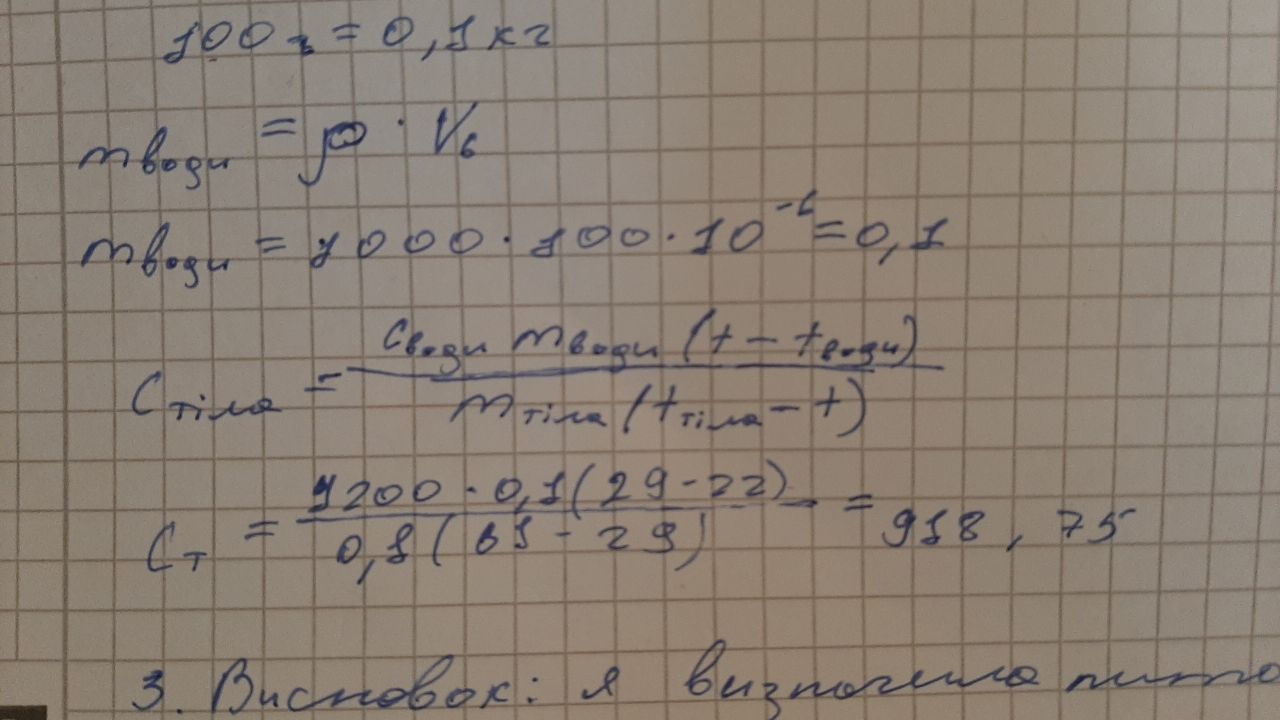 100 г = 0,1 кг
m води = ρ · Vв
m води = 1000 · 100 · 10⁻⁶ = 0,1
C тіла = c води m води (t - t води) / m тіла (t тіла - t)
Cт = 4200 · 0,1 (29 - 22) / 0,1 (61 - 29) = 918,75
3. Висновок: я визначила пито